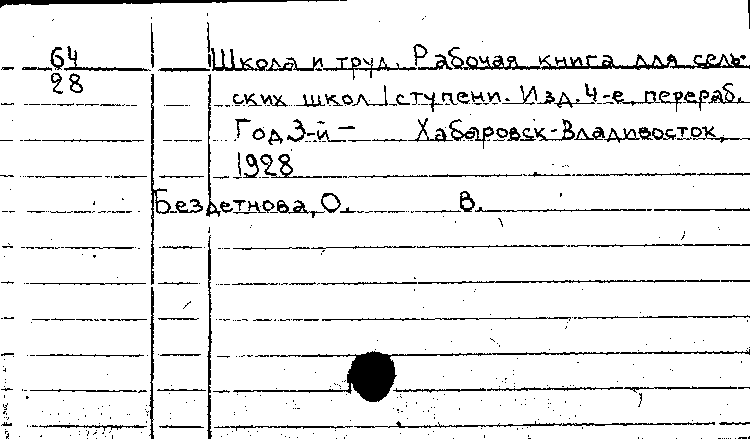 64 Школа и труд. Рабочая книга для сель-
28 ских школ I ступени. Изд. 4-е, перераб.
Год 3-й – Хабаровск-Владивосток,
1928
Бездетнова, О. В.